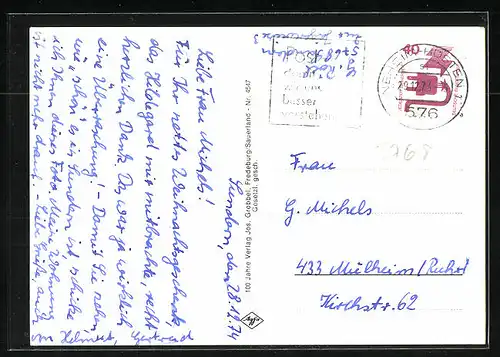 Sundern, den 28.12.74
Liebe Frau Michels!
Für Ihr nettes Weihnachtsgeschenk
das Hildegard mit mitbrachte, recht
herzlichen Dank. Das war ja wirklich
eine Überraschung! - Damit Sie sehen
wie schön es in Sundern ist, schicke
ich Ihnen dieses Foto. Meine Wohnung
ist nicht mehr drauf. - Liebe Grüße, auch
von Helmut, Gertrud
100 Jahre Verlag Jos. Grobbel, Fredeburg/Sauerland - Nr. 4547
Gesetzl. gesch.
5768 Sundern
POST
besser
verstehen
NEHEIM-HÜSTEN 1
29.12.74
576
5768
Frau
G. Michels
433 Mülheim/Ruhr
Kirchstr. 62